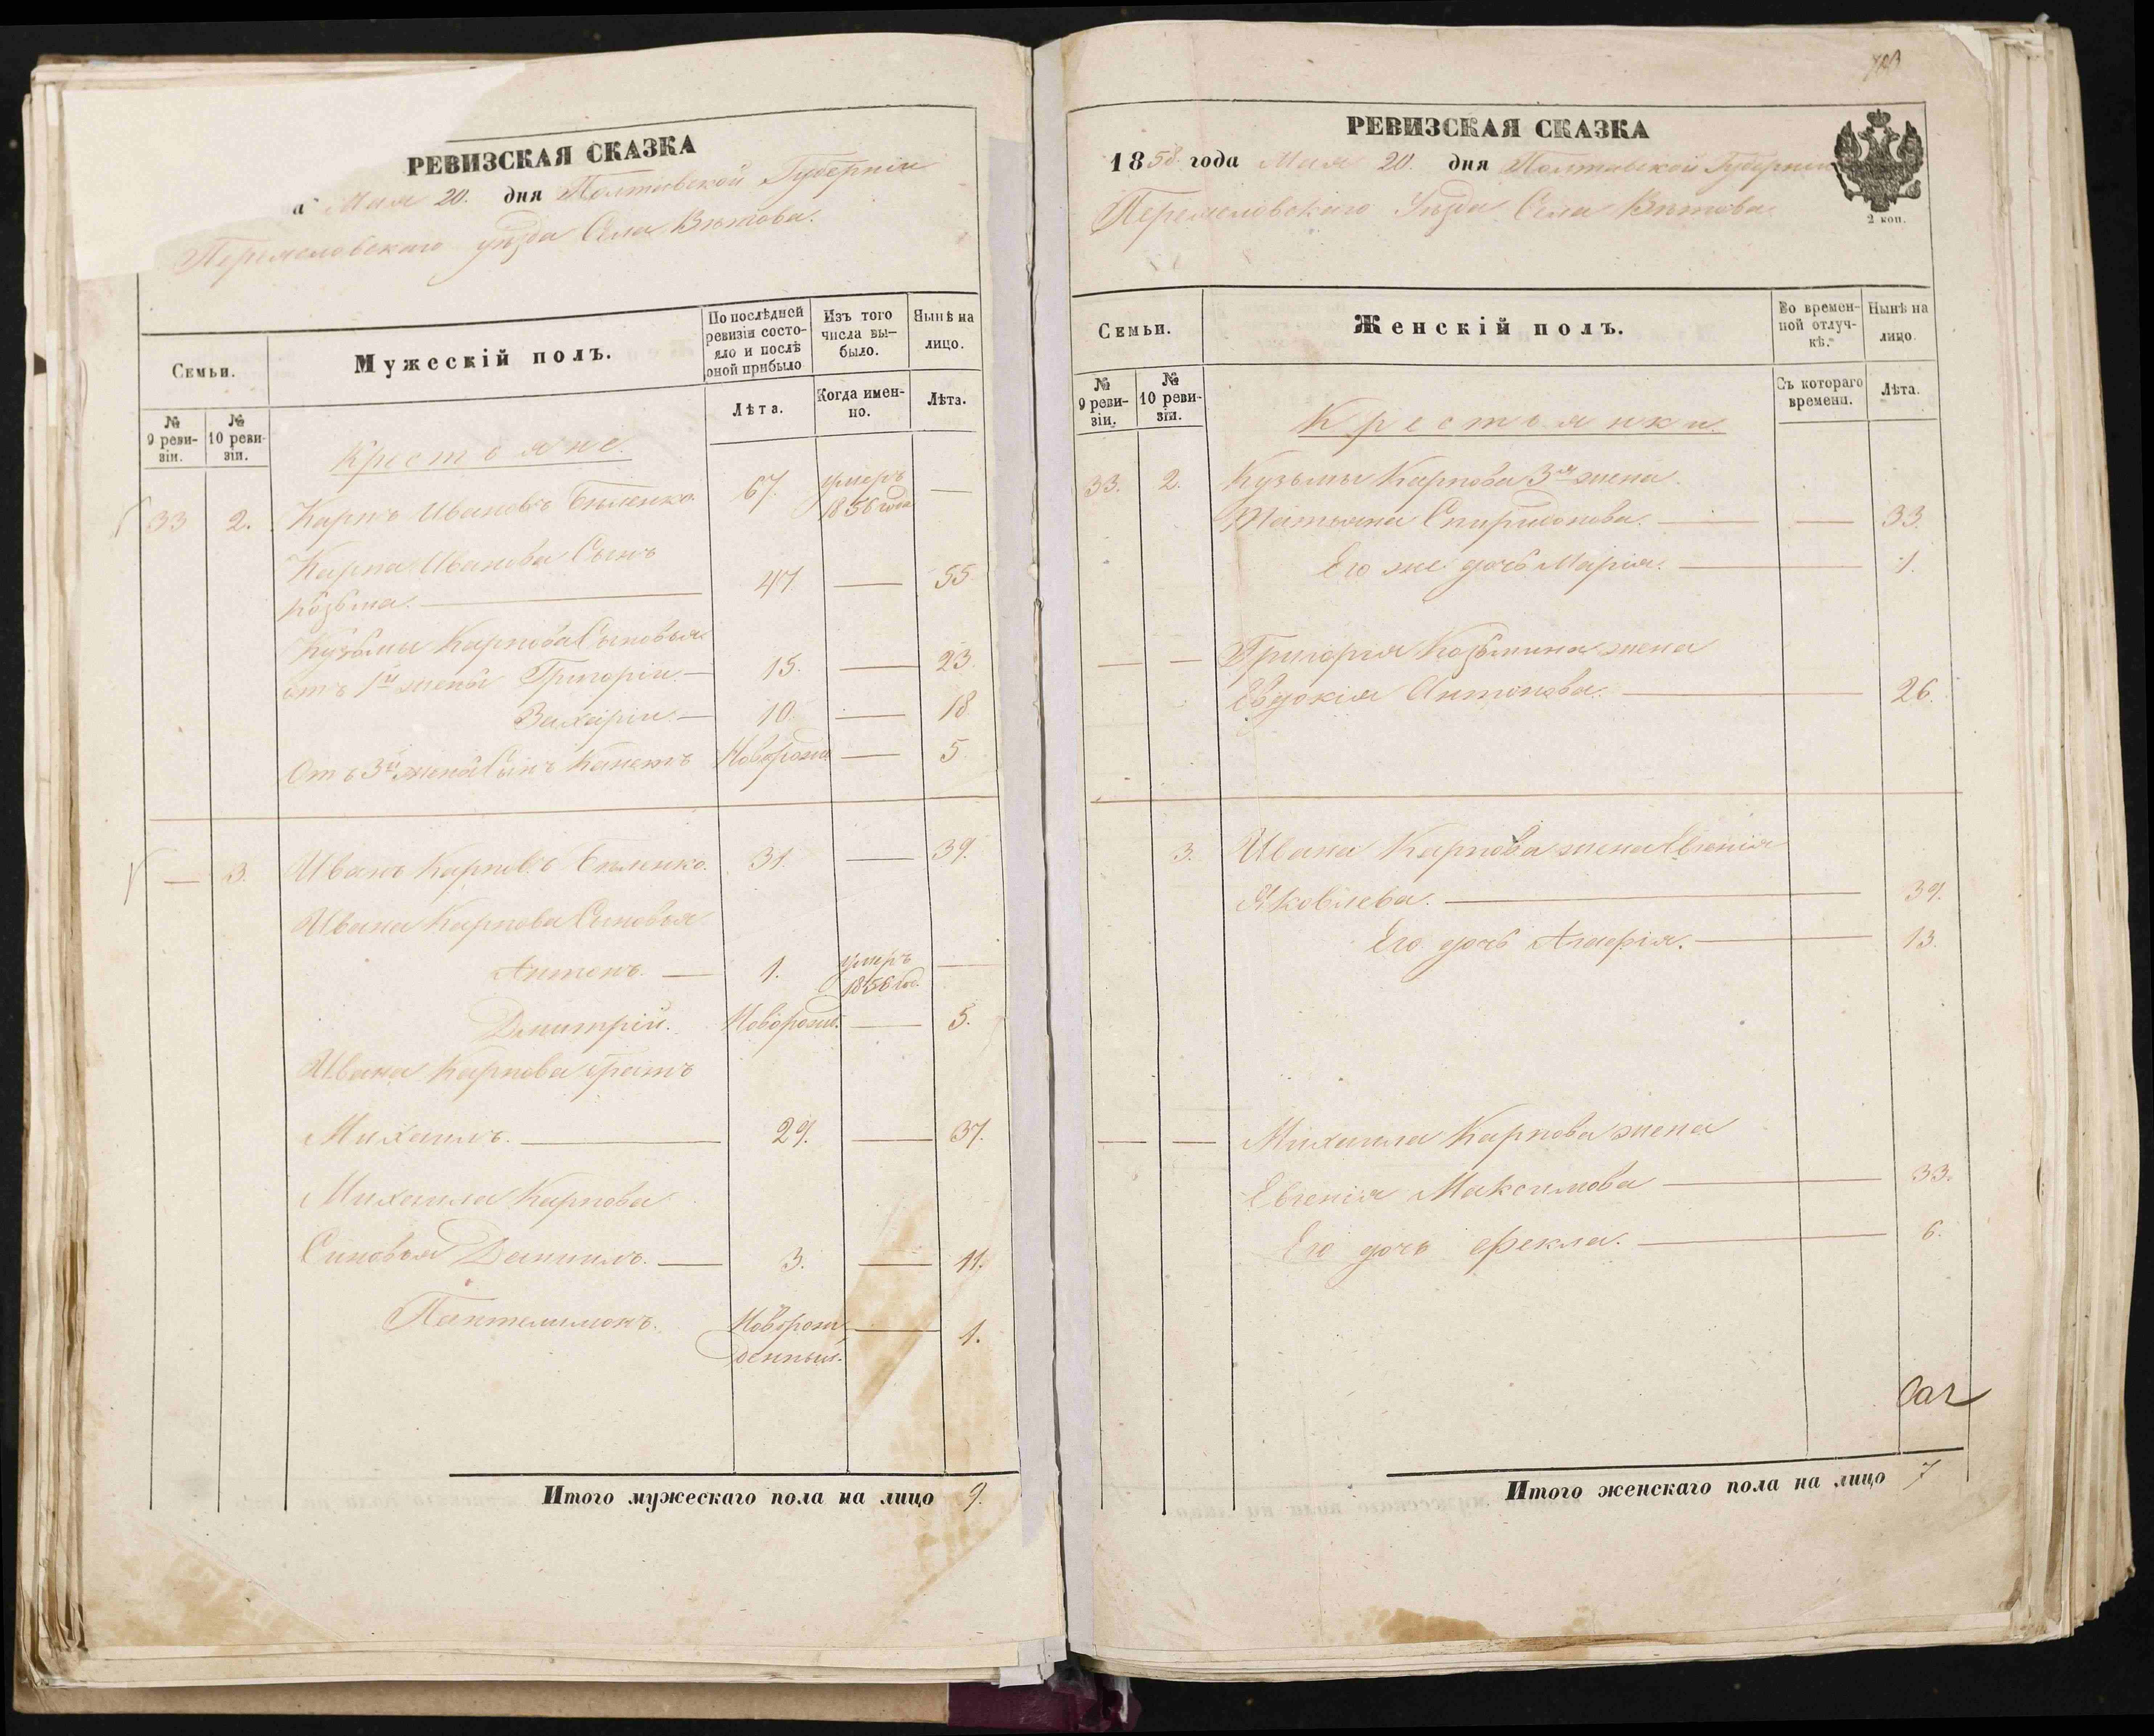 РЕВИЗСКАЯ СКАЗКА
а Мая 20. дня Полтавской Губерніи
Переяславскаго уѣзда Села Вьюнова.
Семьи.
Мужескій полъ.
По послѣдней ревизіи состояло и послѣ оной прибыло
Изъ того числа выбыло.
Нынѣ на лицо.
№ 9 ревизіи.
№ 10 ревизіи.
Лѣта.
Когда именно.
Лѣта.
Крестьяне.
33 2. Карпъ Ивановъ Бѣленко 67. умеръ 1856 года —
Карпа Иванова Сынъ
Козьма. 47 — 55
Кузьмы Карпова Сыновья
отъ 1й жены Григорій. — 15. — 23.
Захарій. — 10 — 18
Отъ 3й жены Сынъ Новорожд — 5
— 3. Иванъ Карповъ Бѣленко. 31. — 39.
Ивана Карпова Сыновья
Антонъ. — 1. умеръ 1856 го. —
Дмитрій. Новорожд. — 5.
Ивана Карпова братъ
Михаилъ. — 29. — 37.
Михаила Карпова
Сыновья Даніилъ. — 3. — 11.
Пантелимонъ. Новорож — 1.
денный.
Итого мужескаго пола на лицо 9.
РЕВИЗСКАЯ СКАЗКА
1858 года Мая 20. дня Полтавской Губерніи
Переяславскаго Уѣзда Села Вьюнова.
2 коп.
Семьи.
Женскій полъ.
Во временной отлучкѣ.
Нынѣ на лицо.
№ 9 ревизіи.
№ 10 ревизіи.
Съ котораго времени.
Лѣта.
Крестьянки.
33. 2. Кузьмы Карпова 3я жена
Татьяна Спиридонова. — — 33.
Его же дочь Марія. — 1.
— — Григорія Козьмина жена
Евдокія Антонова. — 26.
3. Ивана Карпова жена Евгенія
Яковлева. — 39.
Его дочь Агафія. — 13.
— — Михаила Карпова жена
Евгенія Максимова — 33.
Его дочь Фекла. — 6.
Итого женскаго пола на лицо 7